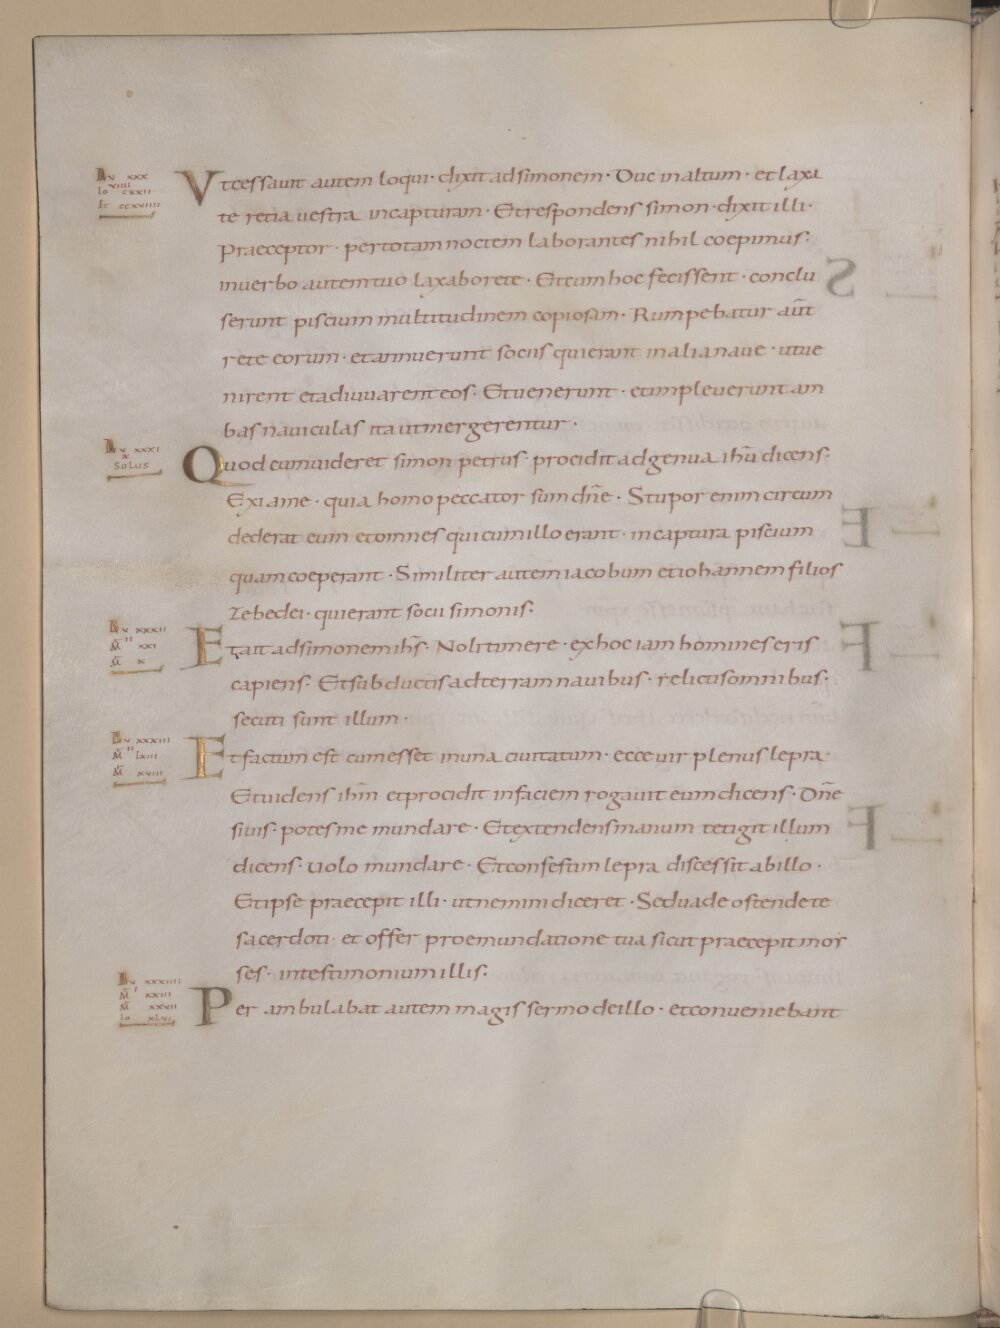 Lv xxx
viiii
Io cxxii
Et ccxviiii
Vtcessauit autem loqui· dixit adsimonem· Duc inaltum· et laxa
te retia uestra incapturam· Etrespondens simon· dixit illi·
Praeceptor· pertotam noctem laborantes nihil coepimus·
inuerbo autem tuo laxabo rete· Etcum hoc fecissent· conclu
serunt piscium multitudinem copiosam· Rumpebatur aut̄
rete eorum· etannuerunt sociis quierant inalianaue· utue
nirent etadiuuarent eos· Etuenerunt· etimpleuerunt am
bas nauiculas ita utmergerentur·
Lv xxxi
x
Solus
Quod cumuideret simon petrus· procidit adgenua ihū dicens·
Exi ame· quia homo peccator sum dn̄e· Stupor enim circum
dederat eum etomnes qui cumillo erant· incaptura piscium
quam coeperant· Similiter autem iacobum etiohannem filios
zebedei· quierant socii simonis·
Lv xxxii
M̄ ii xxi
M̄ x
Etait adsimonem ihs̄· Noli timere· exhoc iam homines eris
capiens· Etsubductis adterram nauibus· relictisomnibus·
secuti sunt illum·
Lv xxxiii
M̄ ii lxiii
M̄ xviii
Etfactum est cumesset inuna ciuitatum· ecce uir plenus lepra·
Etuidens ihm̄ etprocidit infaciem rogauit eum dicens· Dn̄e
siuis· potes me mundare· Etextendens manum tetigit illum
dicens· uolo mundare· Etconfestim lepra discessit abillo·
Etipse praecepit illi· utnemini diceret· Seduade ostendete
sacerdoti· et offer proemundatione tua sicut praecepit moy
ses· intestimonium illis·
Lv xxxiiii
M̄ i xxiii
M̄ xxvii
Io xlvi
Perambulabat autem magis sermo deillo· etconueniebant